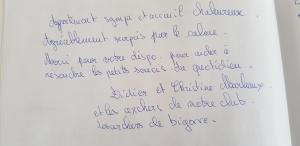 Appartement sympa et accueil chaleureux
Agréablement surpris par le calme.
Merci pour votre dispo. pour aider à
résoudre les petits soucis du quotidien.
Didier et Christine
et les de notre club
de bigorre.